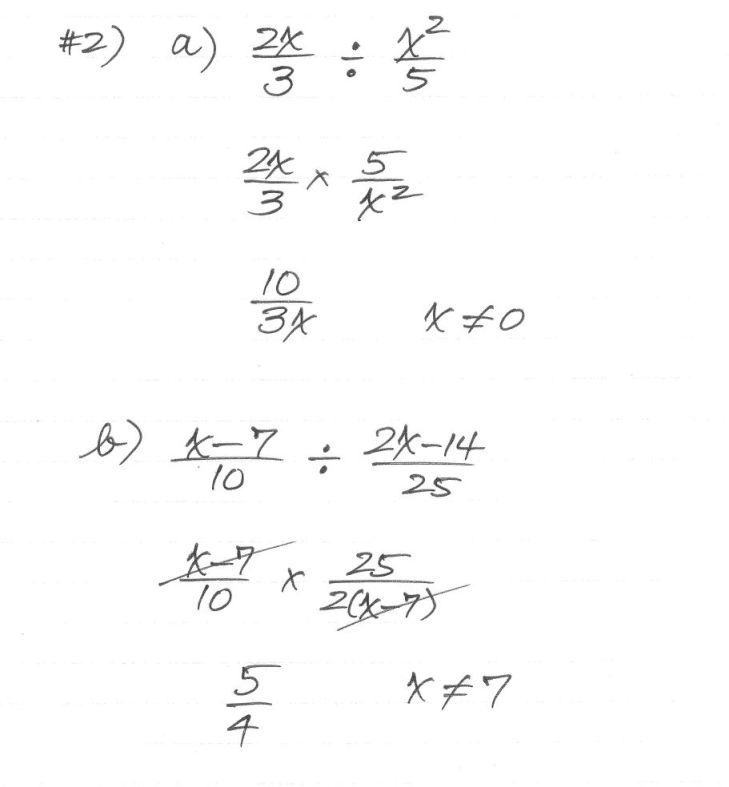 #2) a) 2x/3 ÷ x²/5
2x/3 × 5/x²
10/3x x≠0
b) x-7/10 ÷ 2x-14/25
x-7/10 × 25/2(x-7)
5/4 x≠7